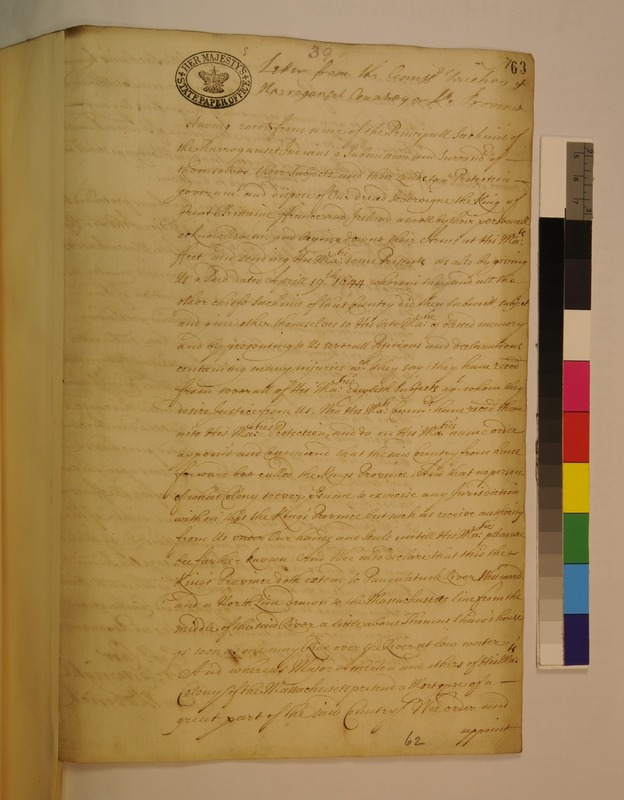 39
HER MAJESTY'S
STATE PAPER OFFICE
63
Letter from the Comrs touching ye
Narraganset Country or Kgs Province
Having received from some of the Principall Sachims of
the Narraganset Indians a Submission and Surrendr of
themselves their Subjects and their Protection
governmt and dispose of Our dread Sovereigne the King of
Great Britaine ffrance and Ireland as well by their personall
acknowledgem and laying downe their Armes at His Maties
ffeet and sending His Matie some Presents as also by giving
Us a Deed dated Aprill 19th 1644 wherein they and all the
other cheife Sachims of that Country did then submitt subject
and give over themselves to His late Matie of blessed memory
and by presenting to Us severall Petitions and declarations
containing many injuries wch they say they have recd
from severall of His Maties English Subjects of whom they
desire Justice from Us, Wee His Maties have recd them
into His Maties Protection, and do in His Maties name order
appoint and commend that the said country from hence
forward bee called the Kings Province And that no person
of what Colony soever presume to exercise any Jurisdiction
within this the Kings Province but such as receive authority
from Us under Our hands and Seals untill His Maties pleasure
bee farther known And Wee do declare that this the
Kings Province doth extend to Paugatuck River Westward
and a North Line drawn to the Massachusets line from the
middle of the said River a little above Thomas Shaw's house
as soon as one may Ride over the River at low water
And whereas Major Atherton and others of His Maties
Colony of the Massachusets pretend a Mortgage of a
great part of the said Country Wee order and
appoint
62